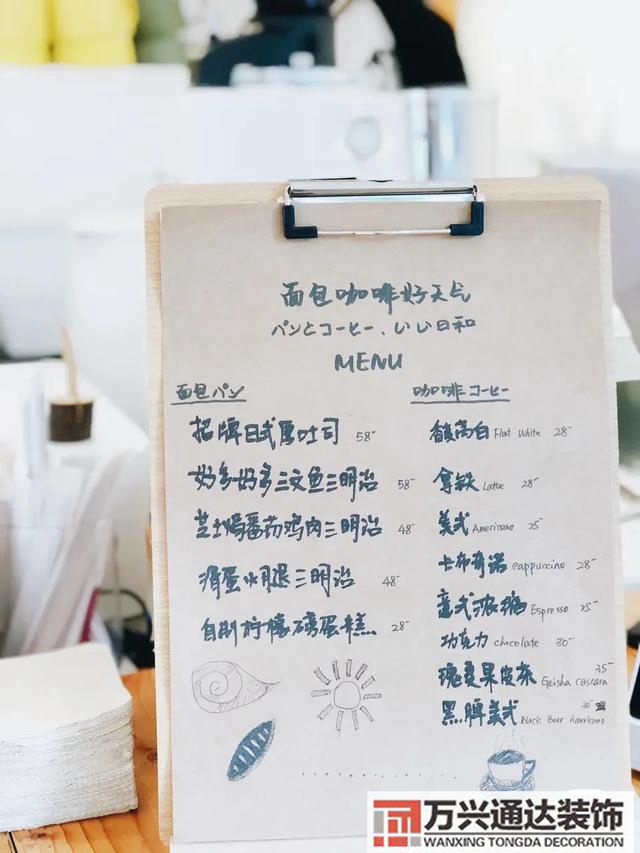 面包咖啡好天气
パンとコーヒー、いい日和
MENU
面包パン
招牌日式厚吐司 58-
好多好多三文鱼三明治 58-
芝士焗番茄鸡肉三明治 48-
滑蛋火腿三明治 48-
自制柠檬磅蛋糕 28-
咖啡コーヒー
馥芮白 Flat White 28-
拿铁 Latte 28-
美式 Americano 25-
卡布奇诺 cappuccino 28-
意式浓缩 Espresso 25-
巧克力 chocolate 30-
瑰夏果皮茶 Geisha cascara 35-
黑啤美式 Black Beer Americano 30-
万兴通达装饰
WANXING TONGDA DECORATION